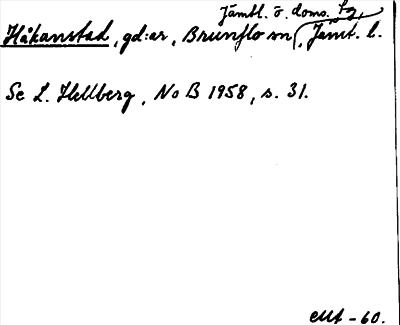 Jämtl. ö. doms. tg,
Håkanstad, gd:ar, Brunflo sn, Jämt. l.
Se L. Hellberg, NoB 1958, s. 31.
-60.